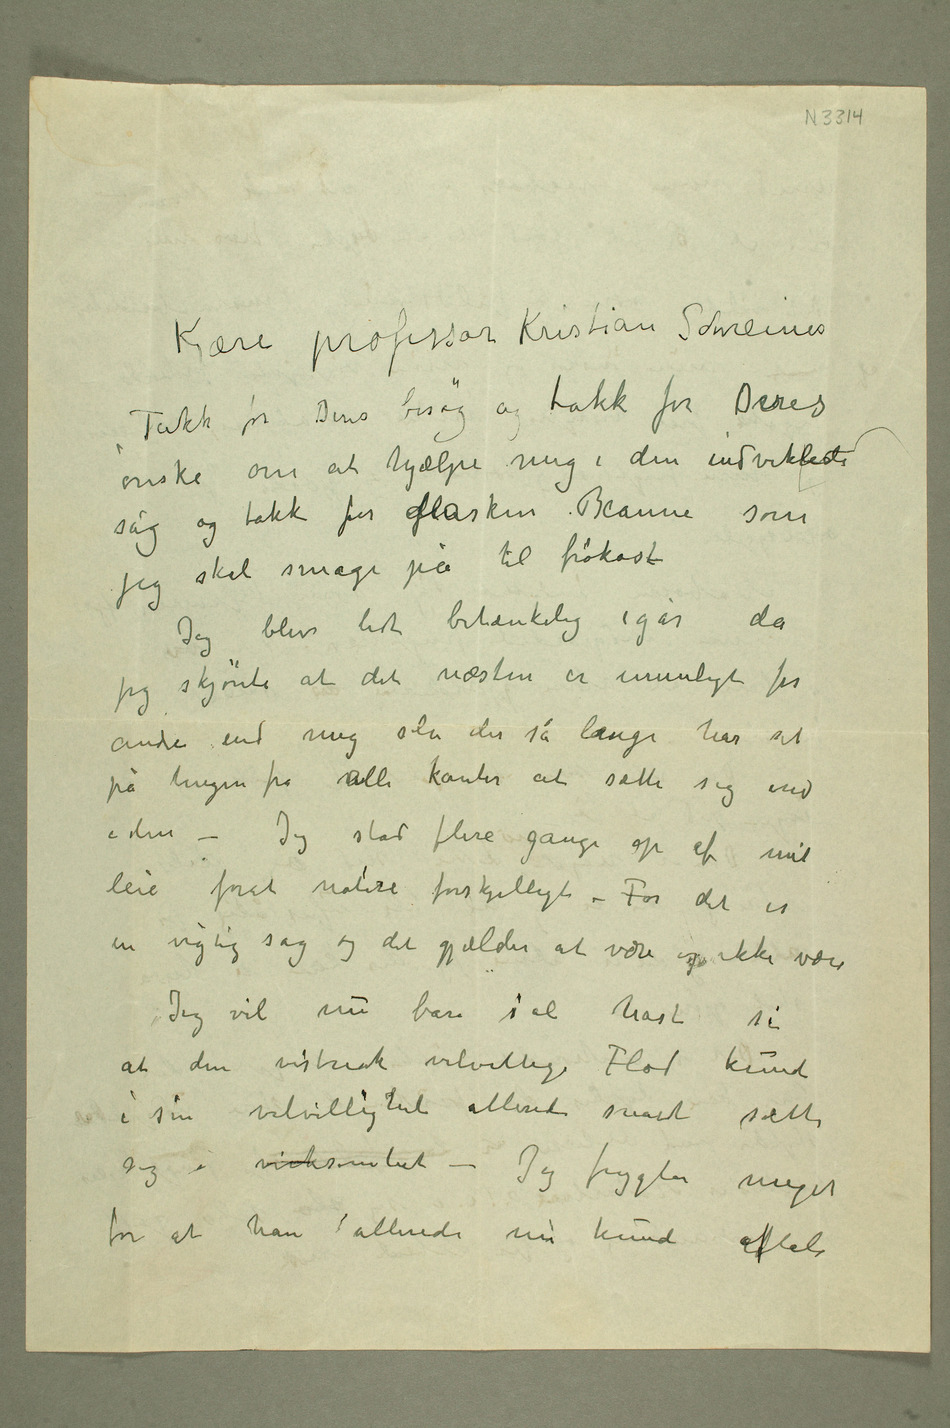 N 3314
Kjære professor Kristian Schreiner
Takk for Deres besøg og takk for Deres
ønske om at hjælpe mig i den indviklede
sag og takk for flasken Beaune som
jeg skal smage på til frokost
Jeg blev lidt betænkelig igår da
jeg skjönte at det næsten er umuligt for
andre end mig selv der så længe har set
på tingen fra alle kanter at sætte sig ind
i den – Jeg stod flere gange op af mit
leie forat notere forskjelligt – For det er
en vigtig sag og det gjælder at være og ikke være
Jeg vil nu bare i al hast si
at den vistnok velvillige Flod kunde
i sin velvillighet allerede snart sætte
sig i virksomhet – Jeg frygter meget
for at han allerede nu kunde aftale